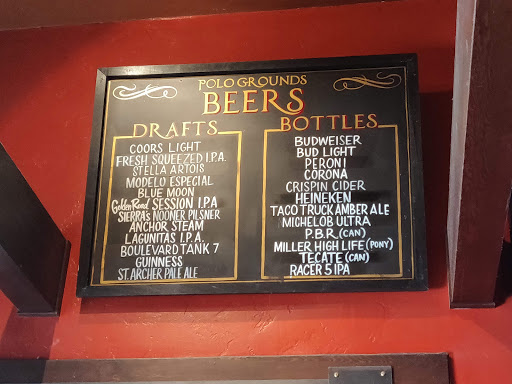 POLO GROUNDS
BEERS
DRAFTS
COORS LIGHT
FRESH SQUEEZED I.P.A.
STELLA ARTOIS
MODELO ESPECIAL
BLUE MOON
Golden Road SESSION I.P.A
SIERRA'S NOONER PILSNER
ANCHOR STEAM
LAGUNITAS I.P.A.
BOULEVARD TANK 7
GUINNESS
ST. ARCHER PALE ALE
BOTTLES
BUDWEISER
BUD LIGHT
PERONI
CORONA
CRISPIN CIDER
HEINEKEN
TACO TRUCK AMBER ALE
MICHELOB ULTRA
P.B.R. (CAN)
MILLER HIGH LIFE (PONY)
TECATE (CAN)
RACER 5 IPA